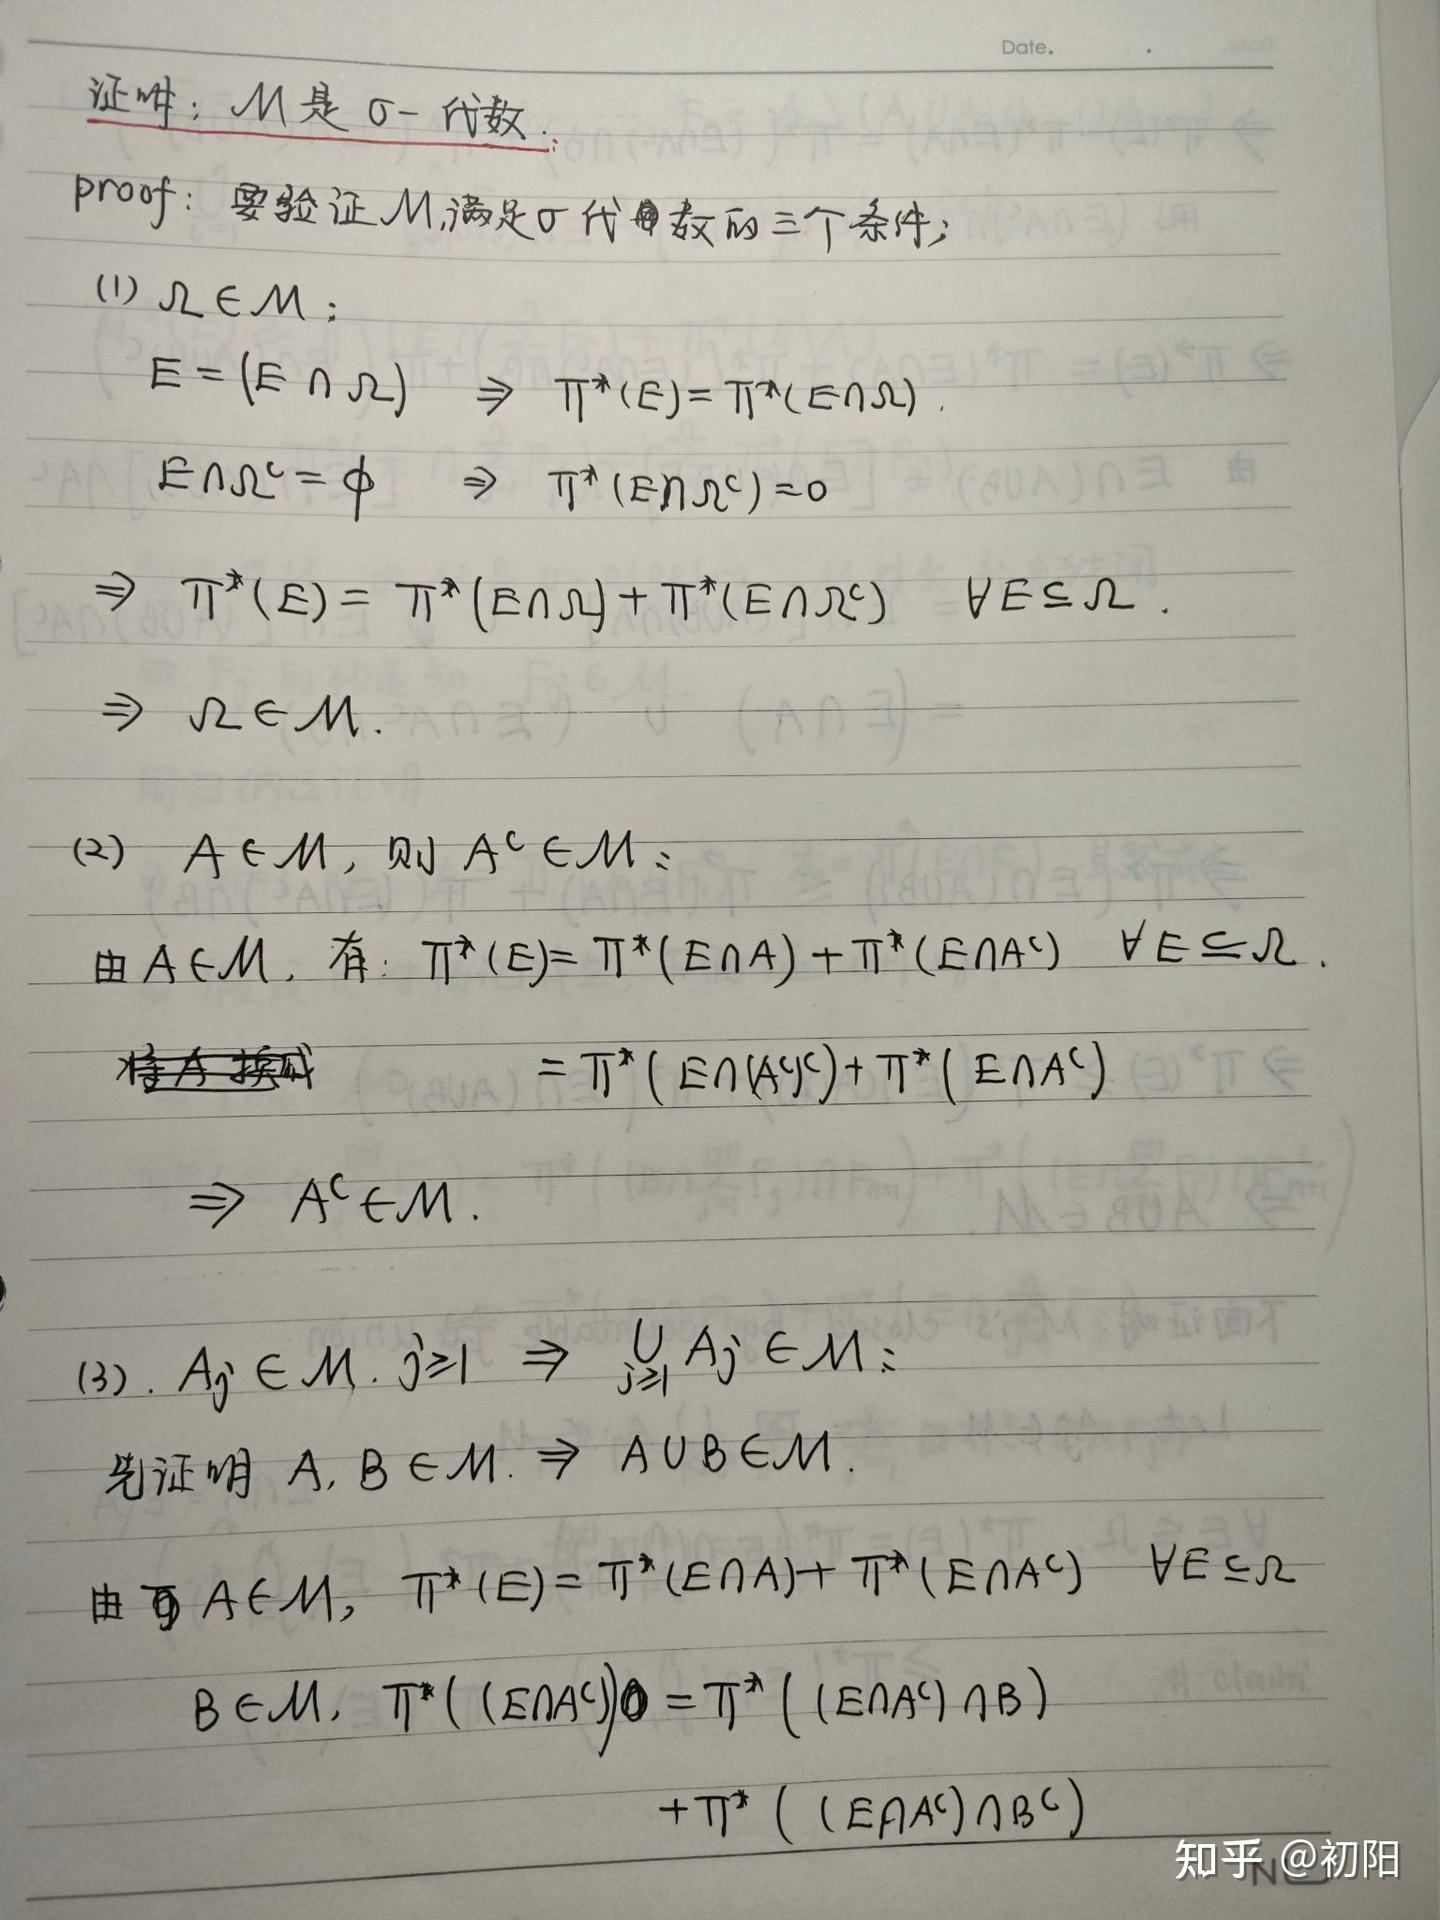 Date.
证明: M是 σ-代数.
proof: 要验证M满足σ代数的三个条件;
(1) Ω∈M:
E=(E∩Ω) ⇒ π*(E)=π*(E∩Ω).
E∩Ωᶜ=ϕ ⇒ π*(E∩Ωᶜ)=0
⇒ π*(E)= π*(E∩Ω)+π*(E∩Ωᶜ) ∀E⊆Ω.
⇒ Ω∈M.
(2) A∈M, 则 Aᶜ∈M:
由A∈M, 有: π*(E)=π*(E∩A)+π*(E∩Aᶜ) ∀E⊆Ω.
将A换成 =π*(E∩(Aᶜ)ᶜ)+π*(E∩Aᶜ)
⇒ Aᶜ∈M.
(3). Aj∈M. j≥1 ⇒ ∪ Aj∈M:
j≥1
先证明 A, B∈M. ⇒ A∪B∈M.
由 A∈M, π*(E)=π*(E∩A)+π*(E∩Aᶜ) ∀E⊆Ω
B∈M, π*((E∩Aᶜ))=π*((E∩Aᶜ)∩B)
+π*((E∩Aᶜ)∩Bᶜ)
知乎 @初阳